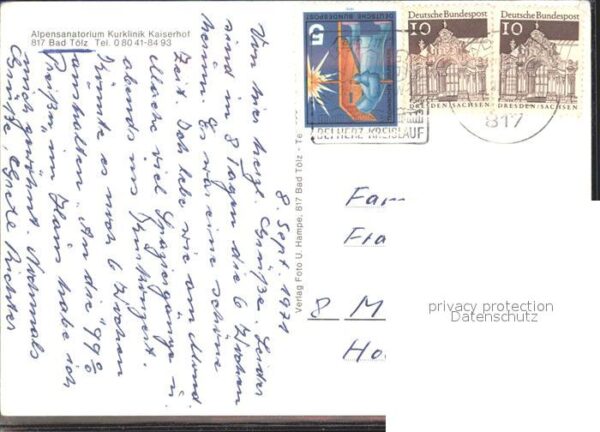 Alpensanatorium Kurklinik Kaiserhof
817 Bad Tölz Tel. 0 80 41-84 93
8. Sept. 1971
Von hier herzl. Grüße. Leider
sind in 8 Tagen die 6 Wochen
herum. Es war eine schöne
Zeit. Ich lebe wie am Mond.
Mache viel Spaziergänge u.
abends ins Kurkonzert.
Könnte es noch 6 Wochen
aushalten. An die "99%
Preißn" im Haus habe ich
mich gewöhnt. Nochmals
Grüße, Richter
Verlag Foto U. Hampe, 817 Bad Tölz - Te
5
DEUTSCHE BUNDESPOST
Deutsche Bundespost
10
DRESDEN/SACHSEN
Deutsche Bundespost
10
DRESDEN/SACHSEN
BEI HERZ-KREISLAUF
817
Fam
Fra
8 M
Ho
privacy protection
Datenschutz